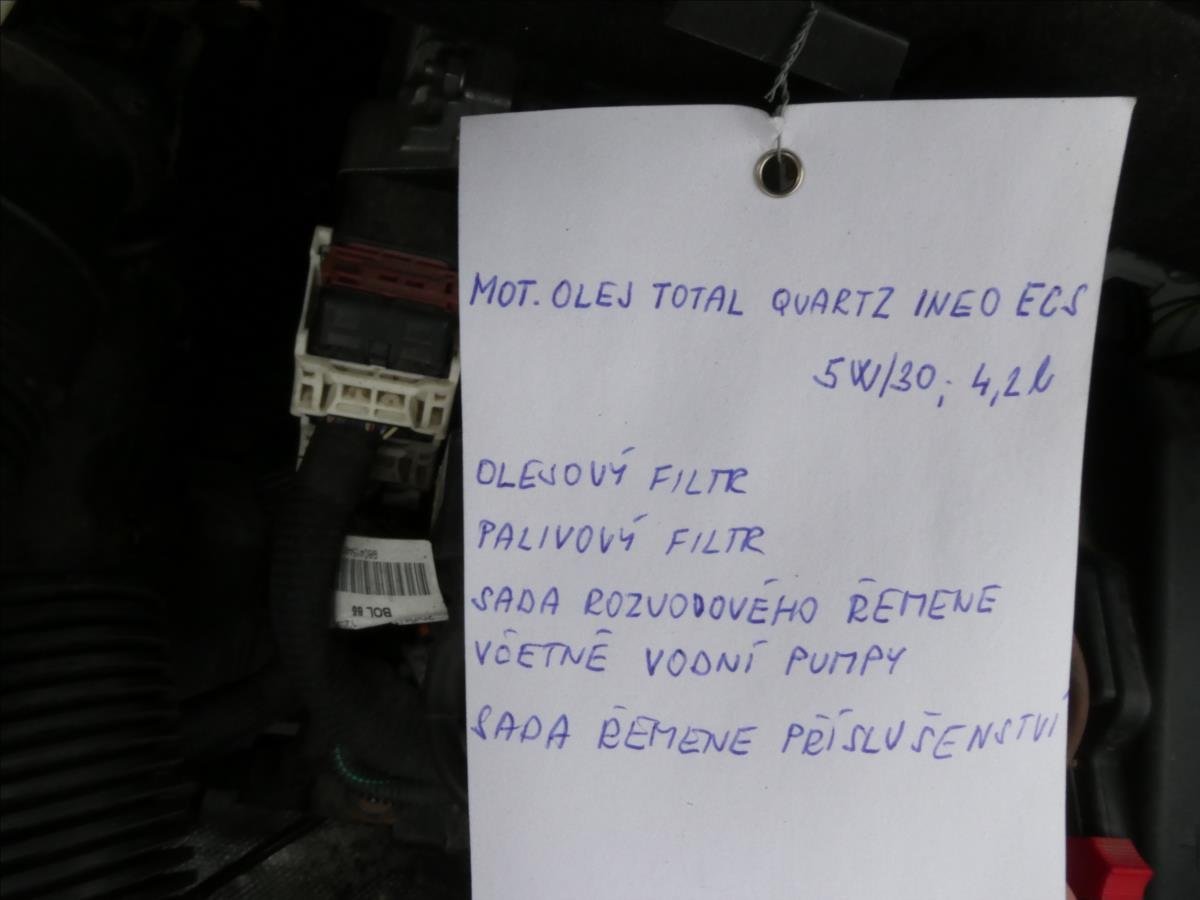 MOT. OLEJ TOTAL QUARTZ INEO ECS
5W/30; 4,2l
OLEJOVÝ FILTR
PALIVOVÝ FILTR
SADA ROZVODOVÉHO ŘEMENE
VČETNĚ VODNÍ PUMPY
SADA ŘEMENE PŘÍSLUŠENSTVÍ
BOL 86